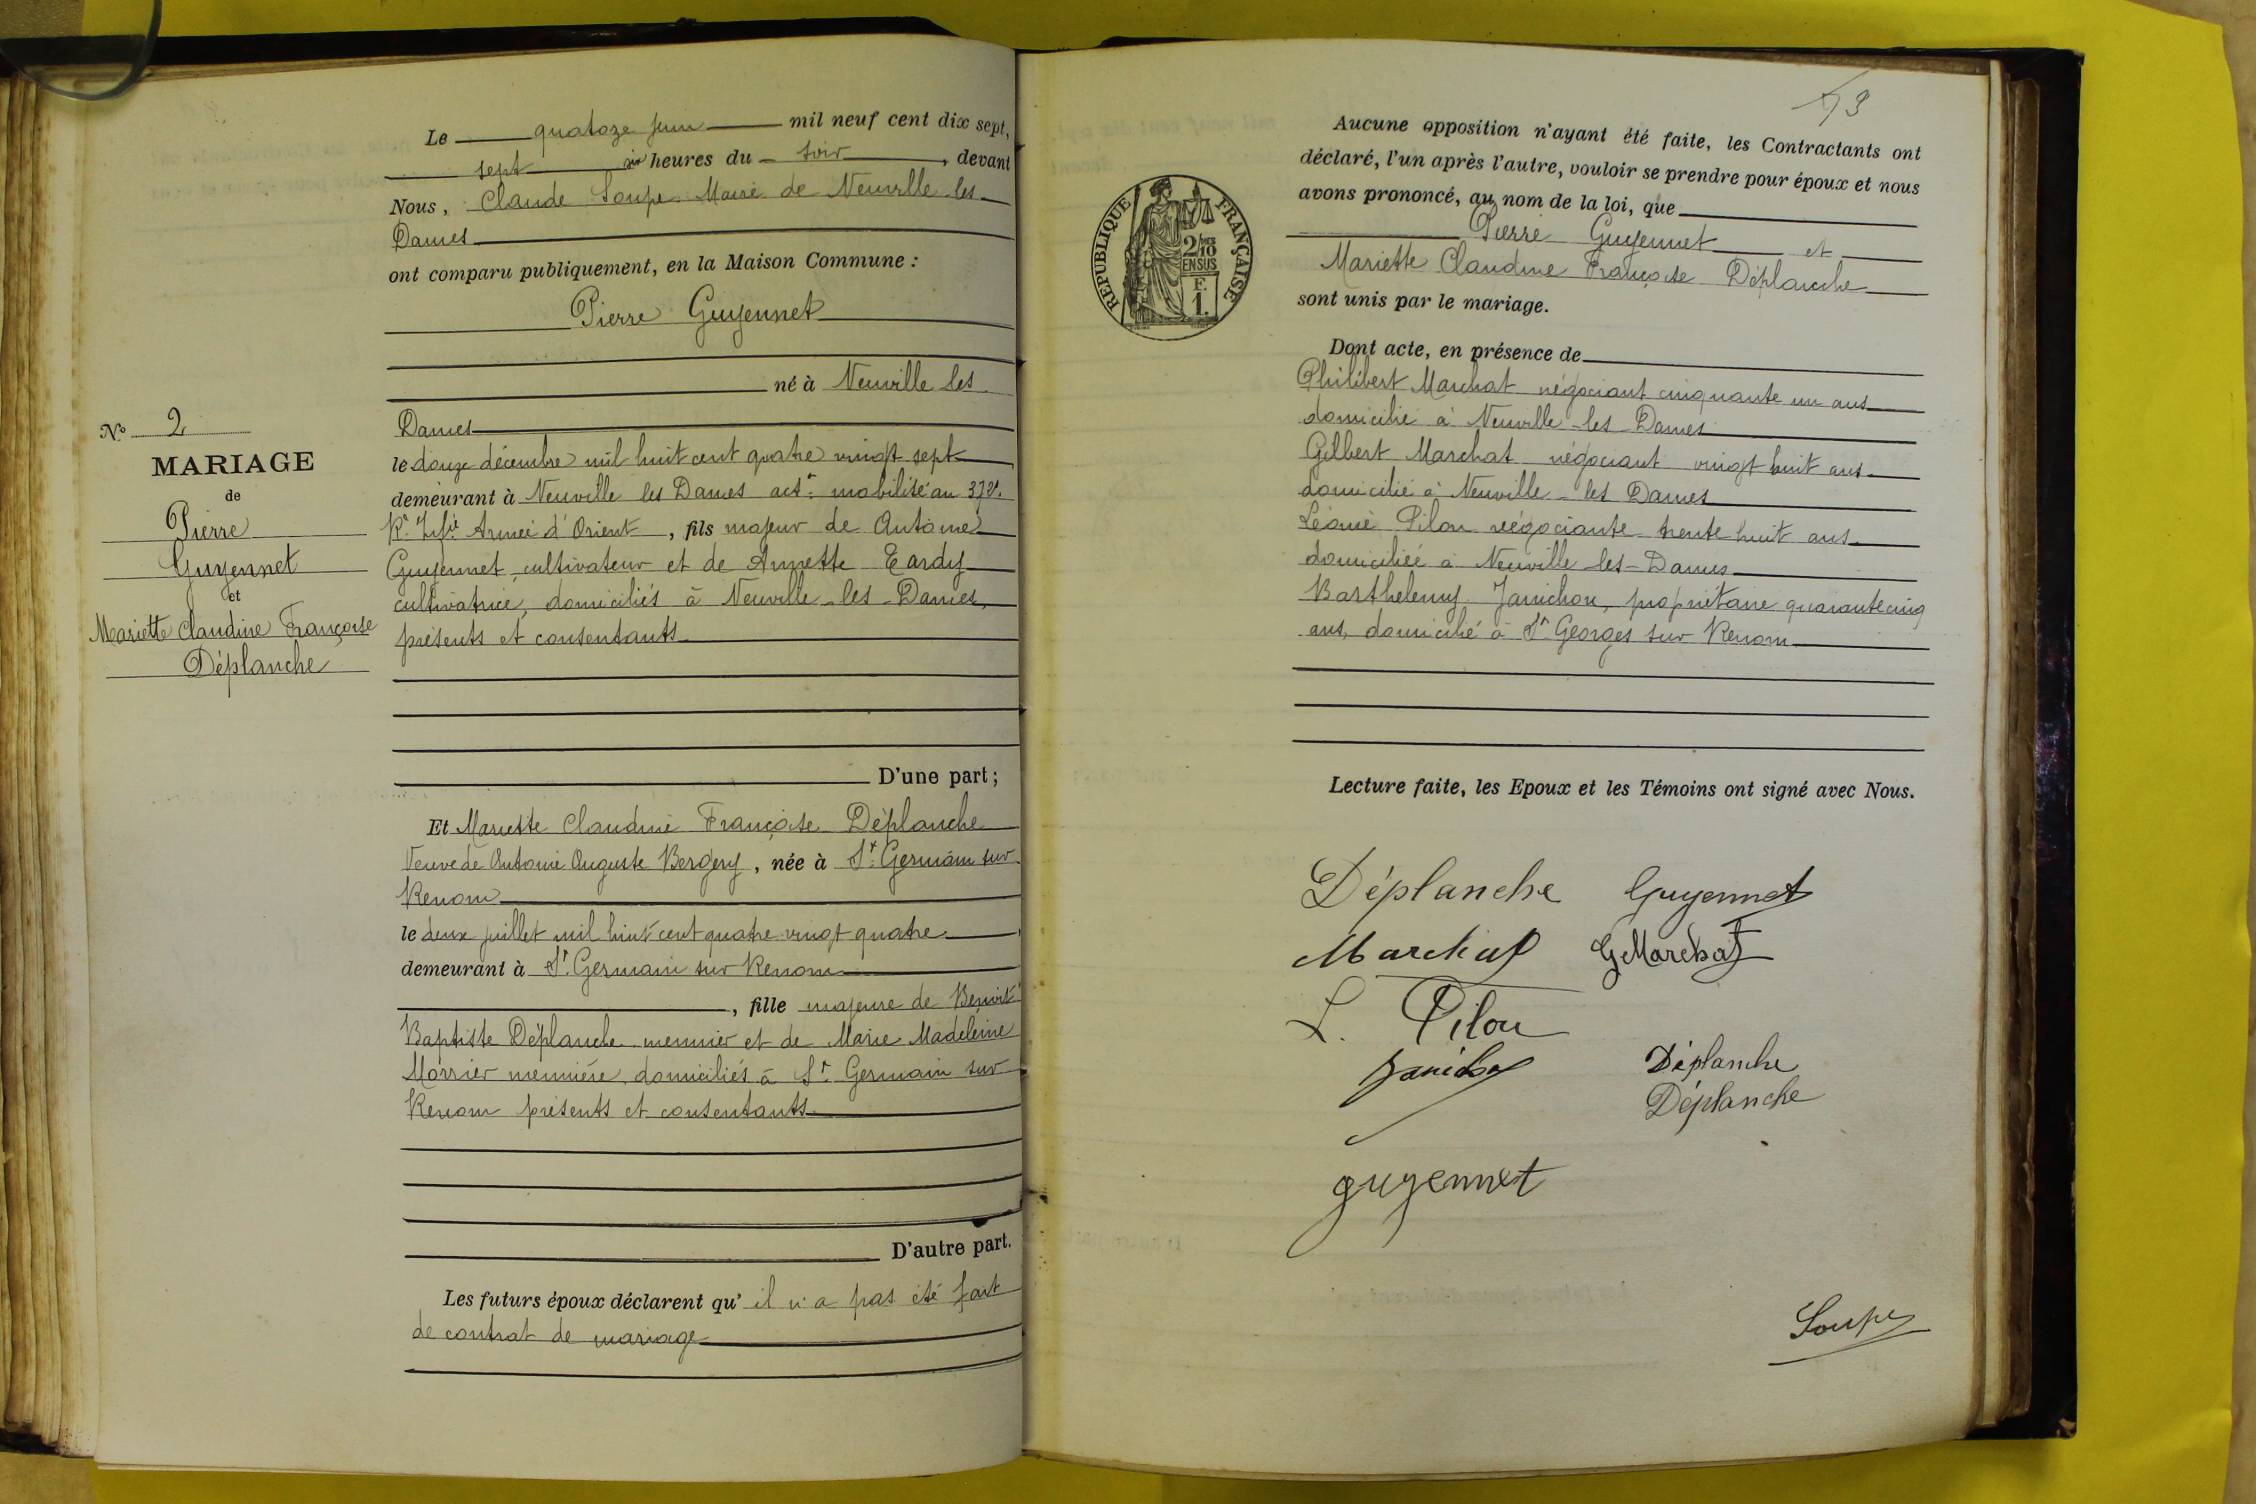 Le quatoze juin mil neuf cent dix sept,
sept heures du soir, devant
Nous, Claude Soupe Maire de Neuville les
Dames
ont comparu publiquement, en la Maison Commune :
Pierre Guyennet
né à Neuville les
Dames
le douze décembre mil huit cent quatre vingt sept
demeurant à Neuville les Dames actt mobilisé au 372e
Rt Infie Armée d'Orient, fils majeur de Antoine
Guyennet, cultivateur et de Annette Tardy
cultivatrice, domiciliés à Neuville-les-Dames,
présents et consentants
D'une part ;
Et Mariette Claudine Françoise Déplanche
Veuve de Antoine Auguste Bergery, née à St Germain sur
Renom
le deux juillet mil huit cent quatre vingt quatre
demeurant à St Germain sur Renom
, fille majeure de Benoit
Baptiste Déplanche meunier et de Marie Madeleine
Morrier meunière, domiciliés à St Germain sur
Renom présents et consentants
D'autre part.
Les futurs époux déclarent qu' il n'a pas été fait
de contrat de mariage
No 2
MARIAGE
de
Pierre
Guyennet
et
Mariette Claudine Françoise
Déplanche
73
Aucune opposition n'ayant été faite, les Contractants ont
déclaré, l'un après l'autre, vouloir se prendre pour époux et nous
avons prononcé, au nom de la loi, que
Pierre Guyennet et
Mariette Claudine Françoise Déplanche
sont unis par le mariage.
Dont acte, en présence de
Philibert Marchat négociant cinquante un ans
domicilié à Neuville-les-Dames
Gilbert Marchat négociant vingt huit ans
domicilié à Neuville-les Dames
Léonie Pilon négociante trente huit ans
domiciliée à Neuville-les-Dames
Barthelemy Janichon, propriétaire quarante cinq
ans, domicilié à St Georges sur Renom
Lecture faite, les Epoux et les Témoins ont signé avec Nous.
Déplanche Guyennet
Marchat G Marchat
L. Pilon
Janichon Déplanche
Déplanche
guyennet
Soupe
RÉPUBLIQUE FRANÇAISE
2/10
EN SUS
F.
1.